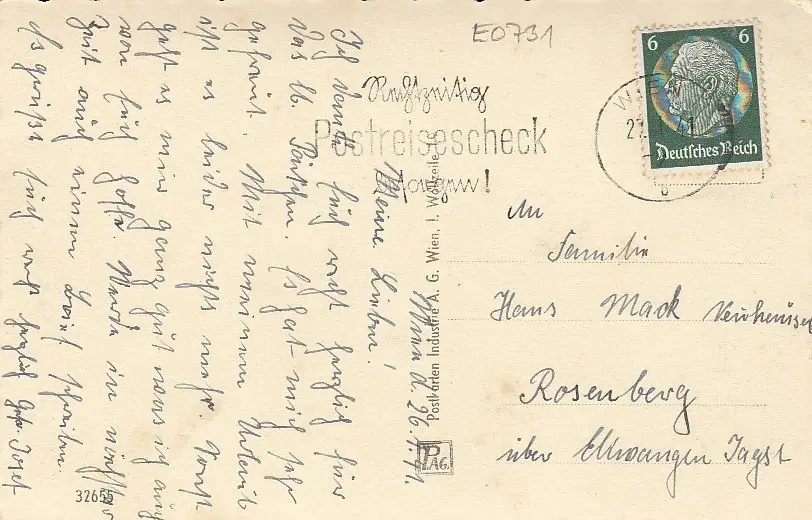 E0731
6 6
Deutsches Reich
WIEN
Rechtzeitig
Postreisescheck
besorgen!
An
Familie
Hans Mack
Rosenberg
über Ellwangen Jagst
Wien d. 26.1.41.
Meine Lieben!
Ich danke Euch recht herzlich für
das lb. Päckchen. Es hat mich sehr
gefreut. Mit meinem Urlaub
ist es leider nichts mehr. Sonst
geht es mir ganz gut was ich auch
von Euch hoffe. Werde in nächster
Zeit auch einen Brief schreiben.
Es grüßt Euch recht herzlich Josef
Postkarten Industrie A. G. Wien, I. Wollzeile
PAG.
32655